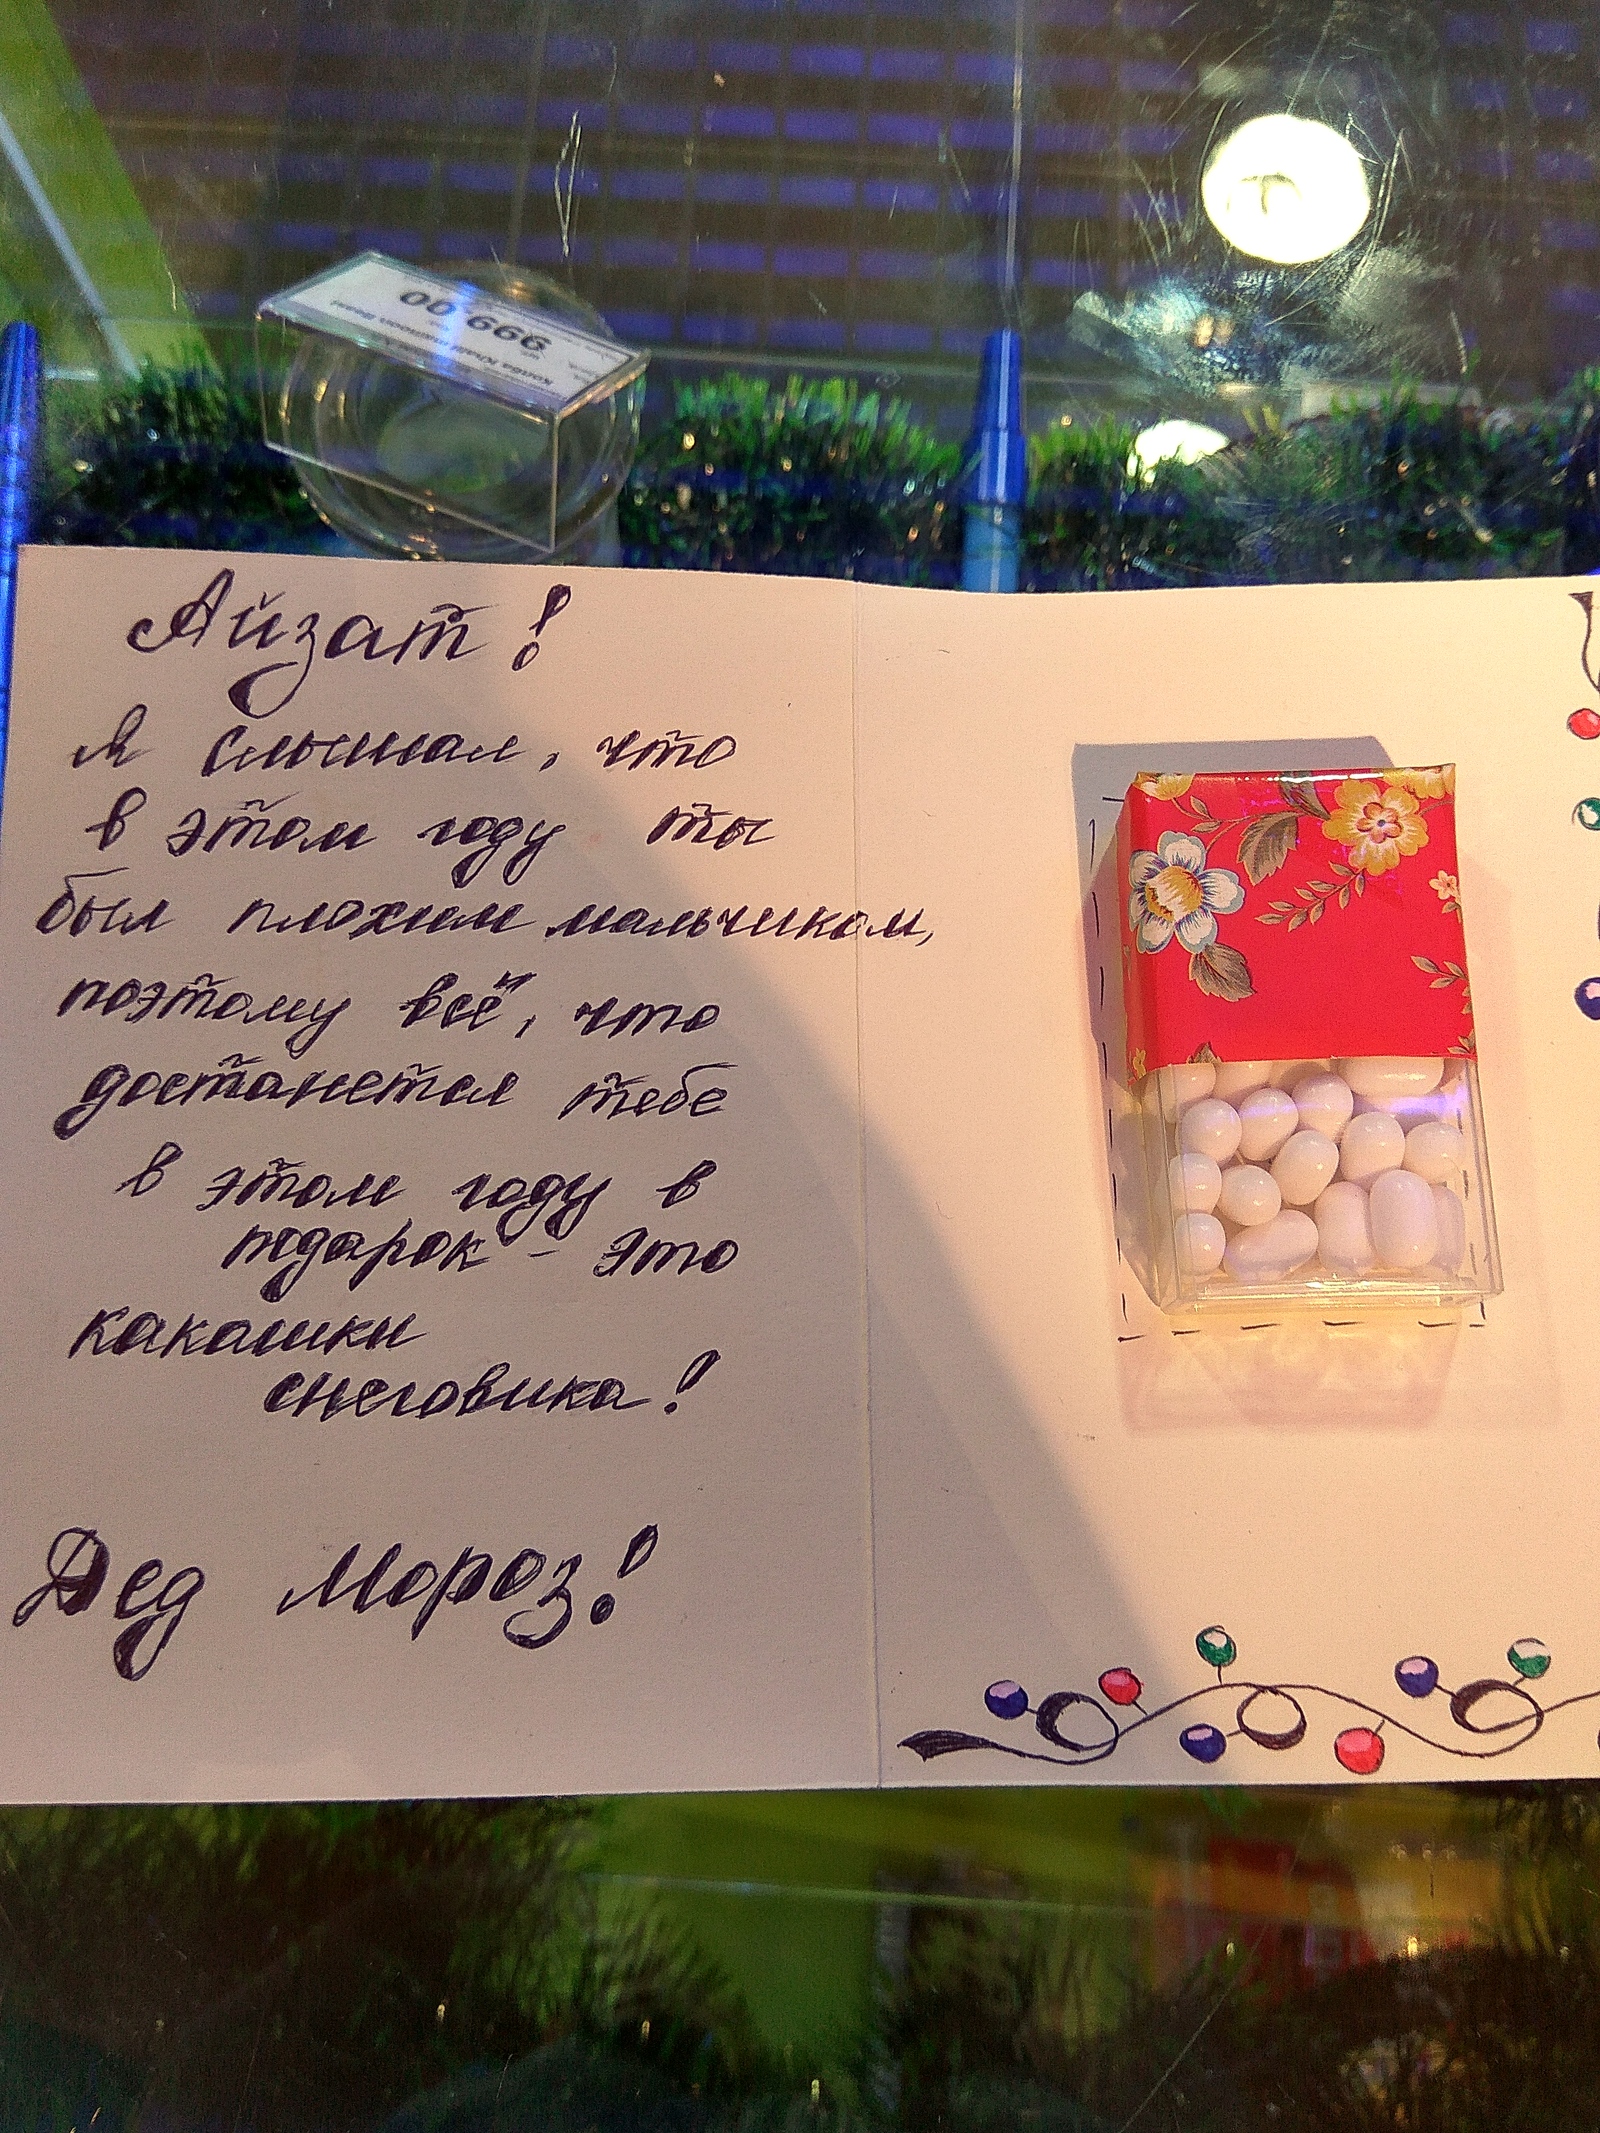 999,00
Айзат!
Я слышал, что
в этом году ты
был плохим мальчиком,
поэтому всё, что
достанется тебе
в этом году в
подарок - это
какашки
снеговика!
Дед Мороз!